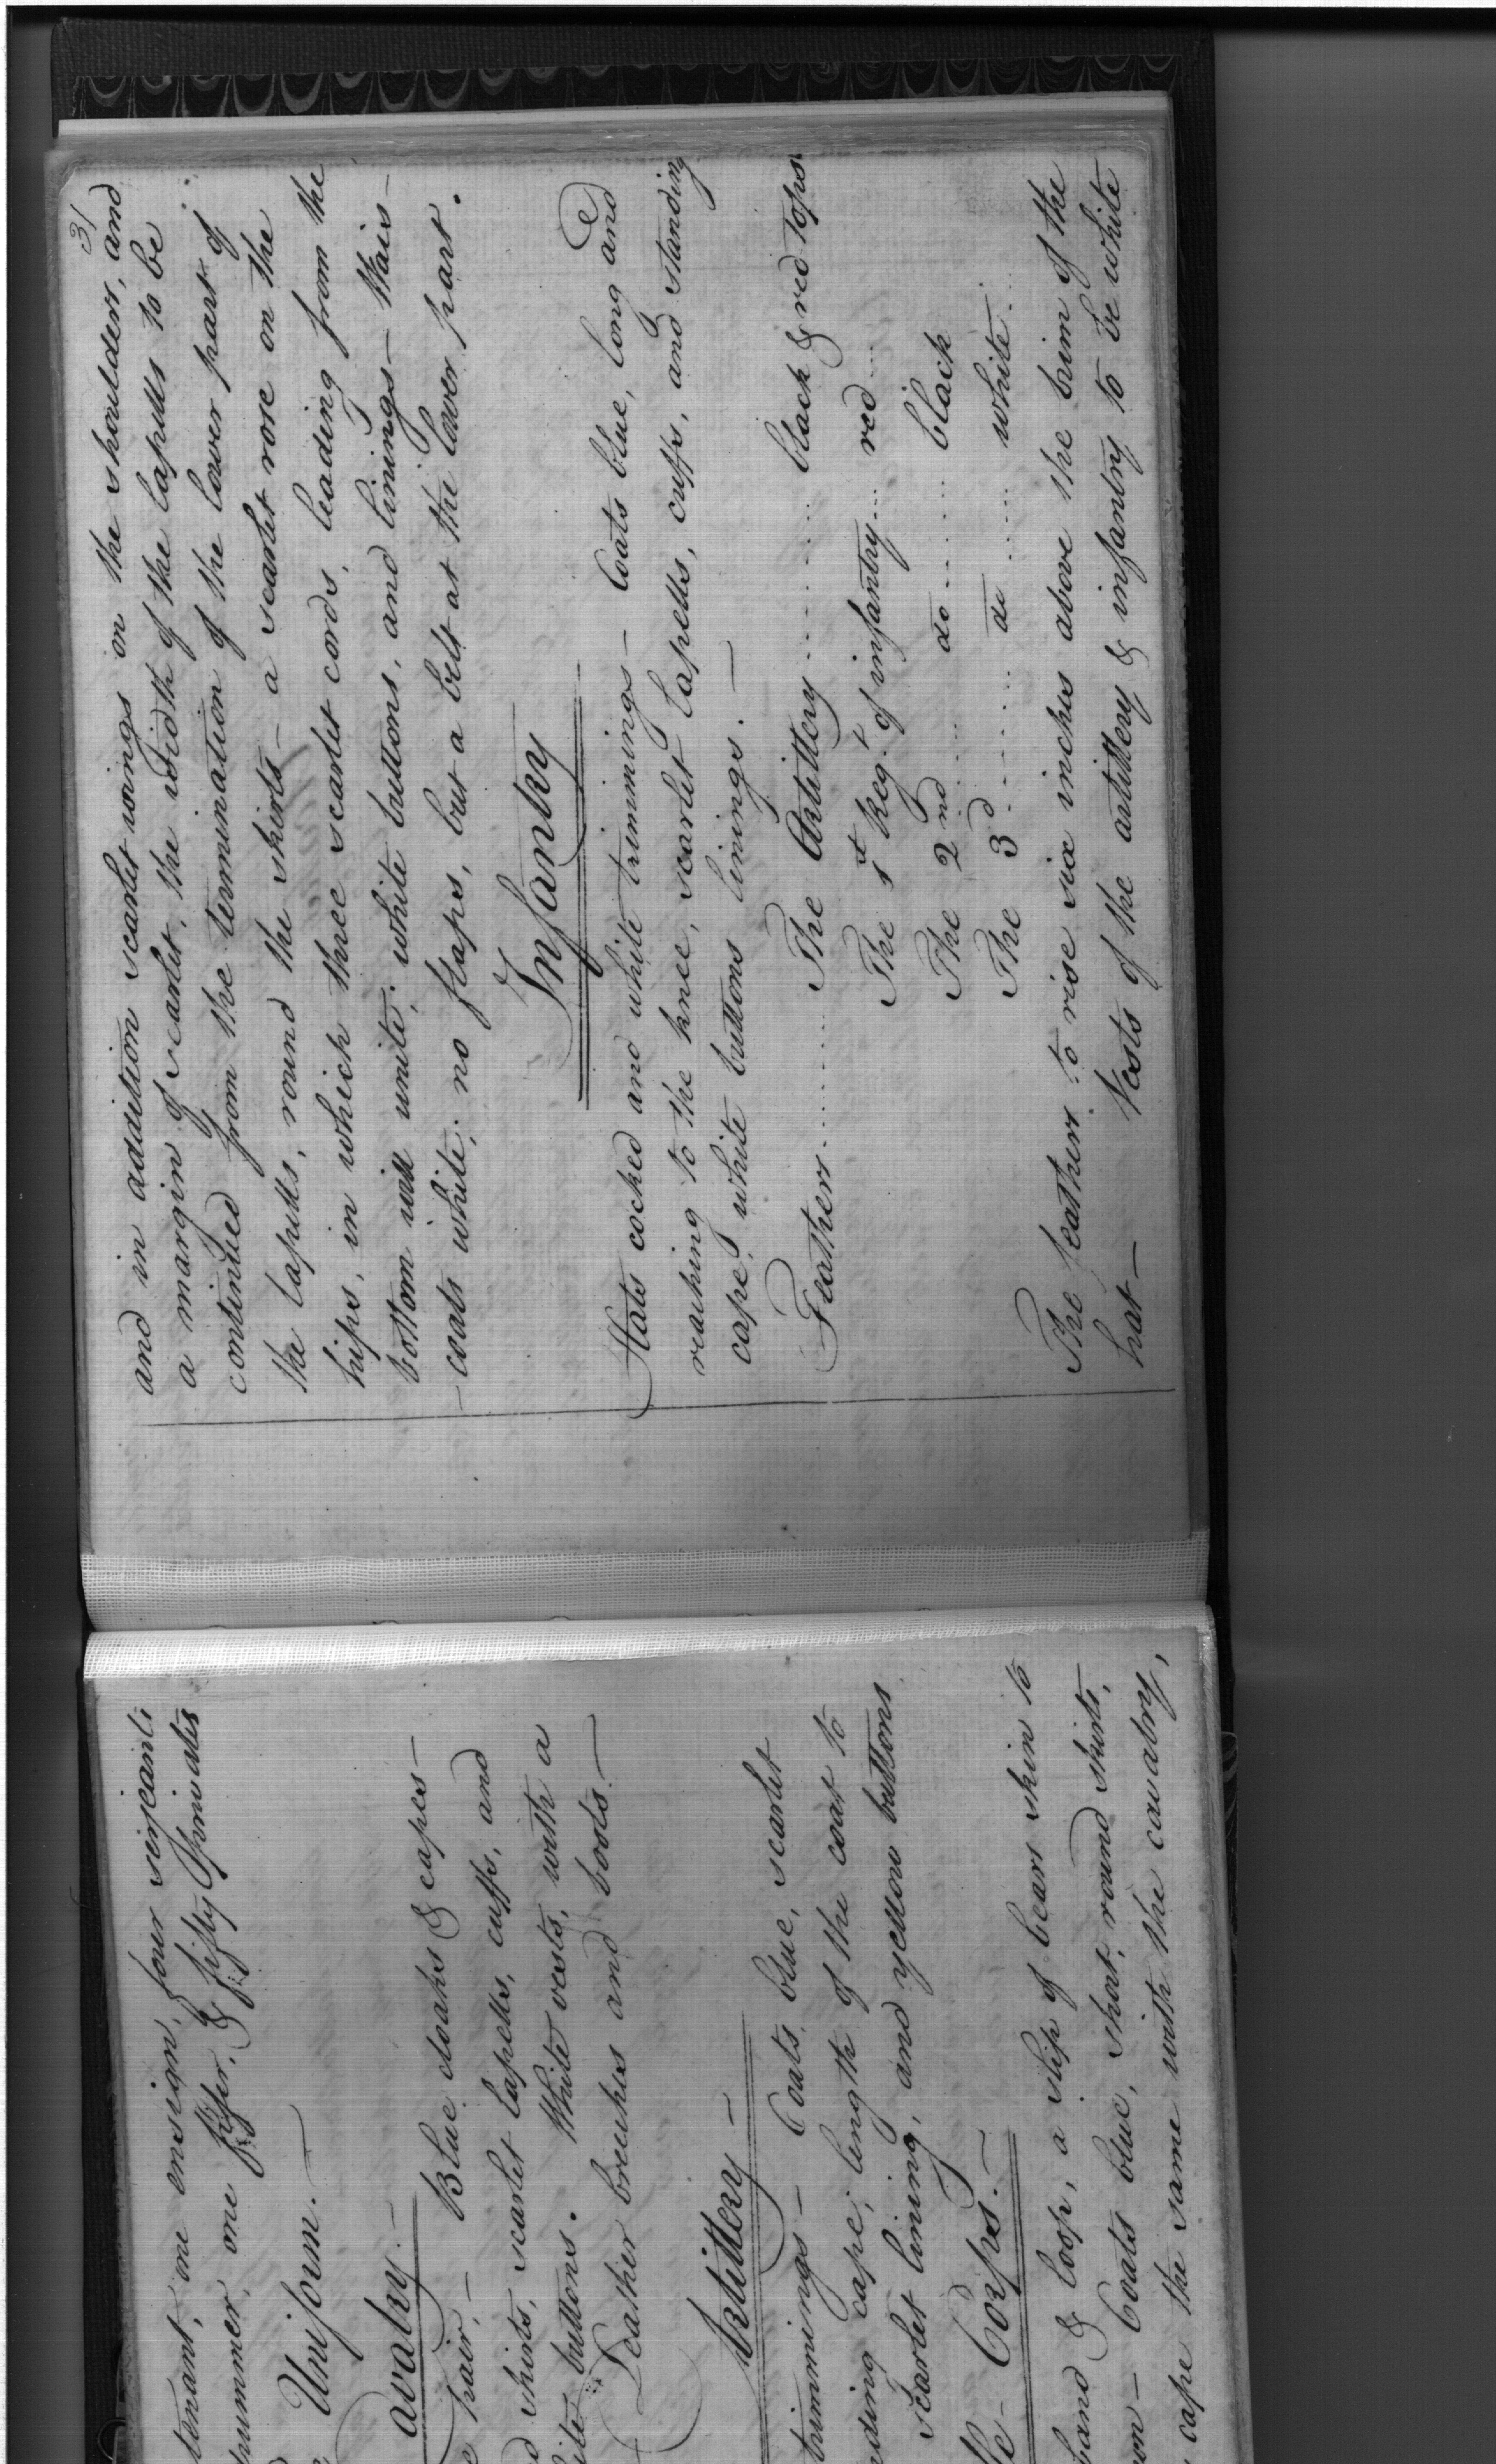 tenant, one ensign, four serjeants
drummer, one fifer, & fifty privates
Uniform. —
avalry. —
hair. — Blue cloaks & capes —
skirts, scarlet lapells, cuffs, and
buttons. White vests, with a
Leather breeches and boots. —
Artillery —
trimmings — Coats blue, scarlet
nding cape; length of the coat to
scarlet lining, and yellow buttons
Corps. —
band & loop, a slip of bears skin to
on — Coats blue, short, round skirts,
cape the same with the cavalry,
3/
and in addition scarlet wings on the shoulders, and
a margin of scarlet, the width of the lapells to be
continued from the termination of the lower part of
the lapells, round the skirts — a scarlet rose on the
hips, in which three scarlet cords, leading from the
bottom will unite; white buttons, and linings — Wais-
-coats white; no flaps, but a belt at the lower part.
Infantry
Hats cocked and white trimmings — Coats blue, long and
reaching to the knee, scarlet lapells, cuffs, and standing
cape, white buttons linings. —
Feathers ........ The Artillery ........ black & red tops
The 1st Regt. of infantry ... red ...
The 2nd ..... do ..... black
The 3d ...... do ..... white ...
The feathers to rise six inches above the brim of the
hat — Vests of the artillery & infantry to be white